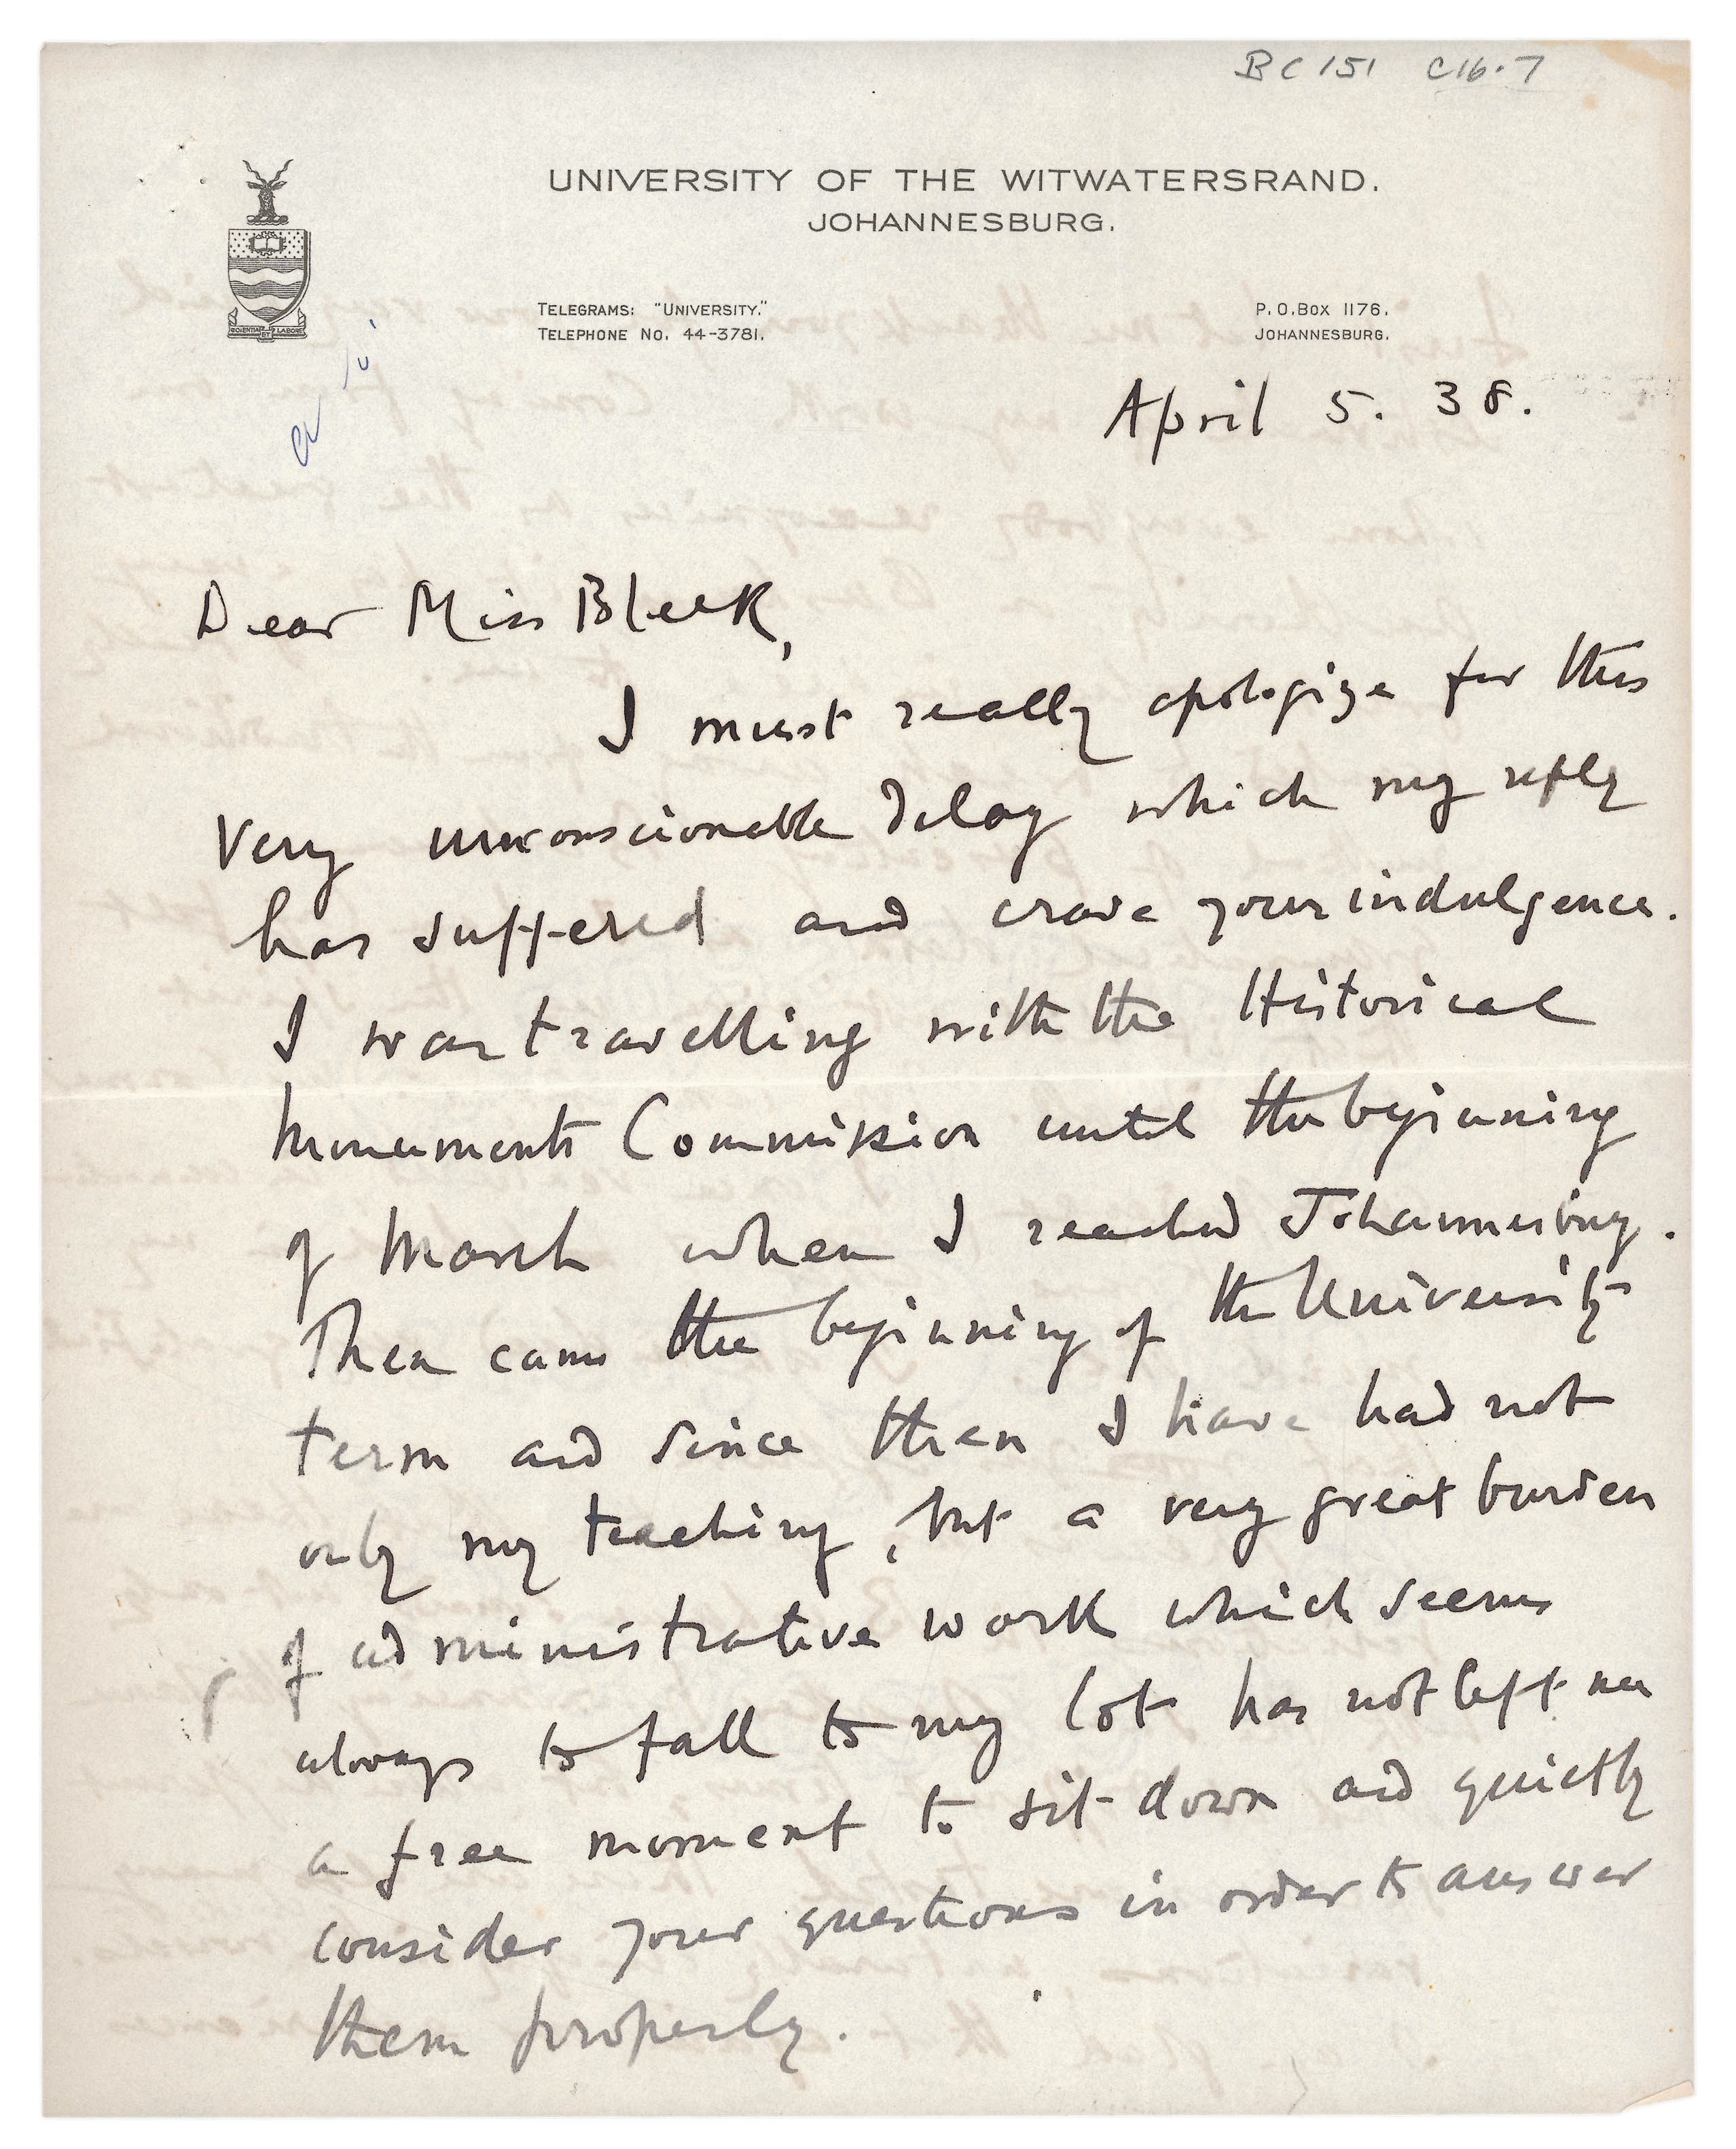 BC 151 C16.7
UNIVERSITY OF THE WITWATERSRAND.
JOHANNESBURG.
TELEGRAMS: "UNIVERSITY."
TELEPHONE No. 44-3781.
P.O.Box 1176.
JOHANNESBURG.
April 5. 38.
Dear Miss Bleek,
I must really apologize for this
very unconscionable delay which my reply
has suffered and crave your indulgence.
I was travelling with the Historical
Monuments Commission until the beginning
of March when I reached Johannesburg.
Then came the beginning of the University
term and since then I have had not
only my teaching, but a very great burden
of administrative work which seems
always to fall to my lot has not left me
a free moment to sit down and quietly
consider your questions in order to answer
them properly.